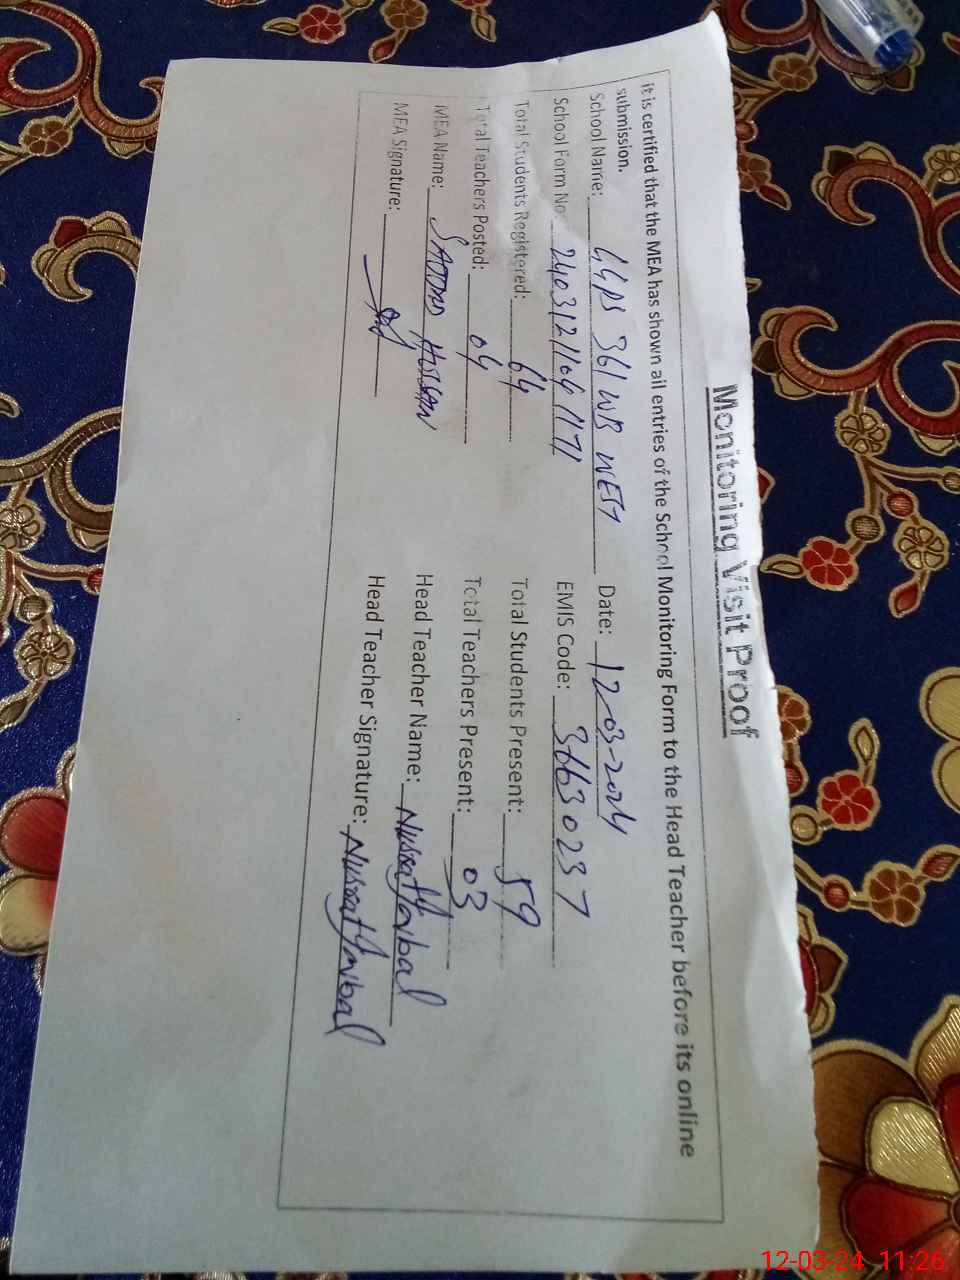 Monitoring Visit Proof
it is certified that the MEA has shown all entries of the School Monitoring Form to the Head Teacher before its online
submission.
School Name: GGPS 361 WB WEST Date: 12-03-2024
School Form No: 24031211041171 EMIS Code: 36630237
Total Students Registered: 64 Total Students Present: 59
Total Teachers Posted: 04 Total Teachers Present: 03
MEA Name: SADDAM HUSSAIN Head Teacher Name: Nusrat Iqbal
MEA Signature: Head Teacher Signature: Nusrat Iqbal
12-03-24 11:26